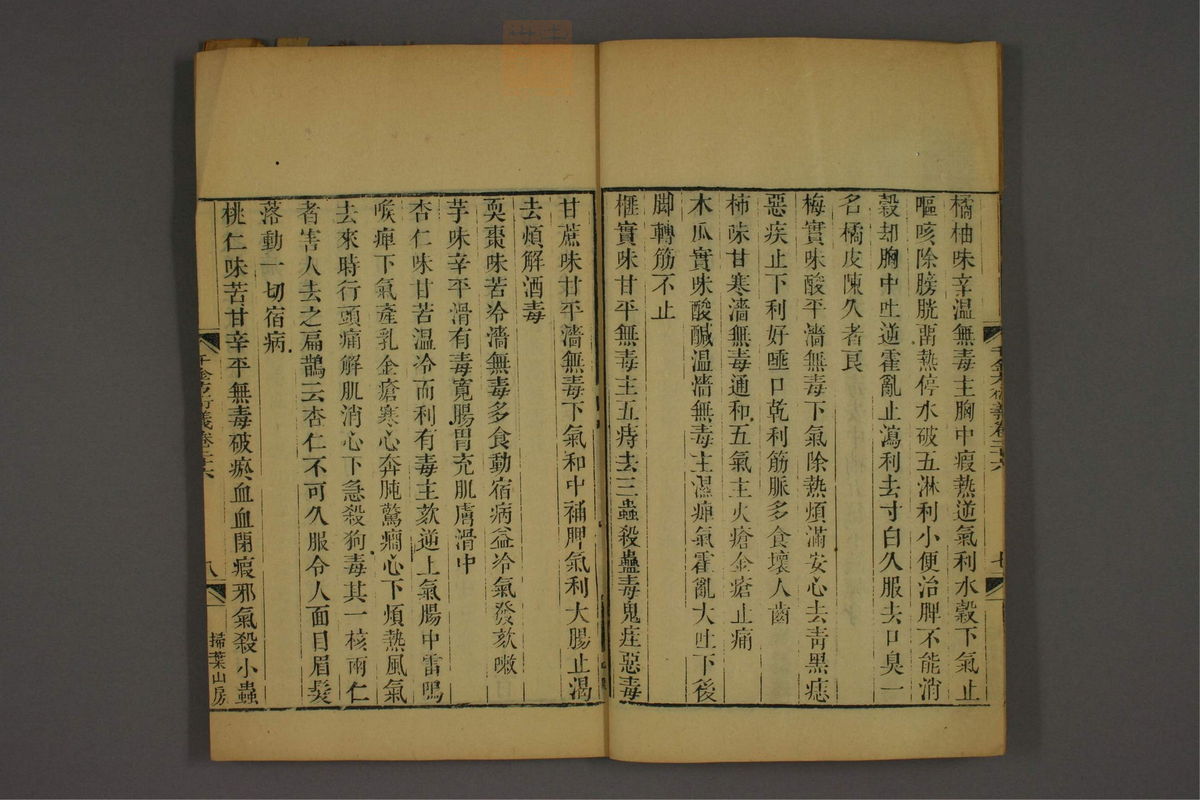 橘柚味辛温無毒主胸中瘕熱逆氣利水穀下氣止
嘔咳除膀胱畱熱停水破五淋利小便治脾不能消
穀却胸中吐逆霍亂止瀉利去寸白久服去口臭一
名橘皮陳久者良
梅實味酸平濇無毒下氣除熱煩滿安心去青黑痣
惡疾止下利好唾口乾利筋脈多食壞人齒
柿味甘寒濇無毒通和五氣主火瘡金瘡止痛
木瓜實味酸鹹温濇無毒主濕痺氣霍亂大吐下後
脚轉筋不止
榧實味甘平無毒主五痔去三蟲殺蠱毒鬼疰惡毒
千金方衍義卷二十六
七
甘蔗味甘平濇無毒下氣和中補脾氣利大腸止渴
去煩解酒毒
耎棗味苦冷濇無毒多食動宿病益冷氣發欬嗽
芋味辛平滑有毒寛腸胃充肌膚滑中
杏仁味甘苦温冷而利有毒主欬逆上氣腸中雷鳴
喉痺下氣產乳金瘡寒心奔肫驚癎心下煩熱風氣
去來時行頭痛解肌消心下急殺狗毒其一核兩仁
者害人去之扁鵲云杏仁不可久服令人面目眉髮
落動一切宿病
桃仁味苦甘辛平無毒破瘀血血閉瘕邪氣殺小蟲
千金方衍義卷二十六
八
掃葉山房